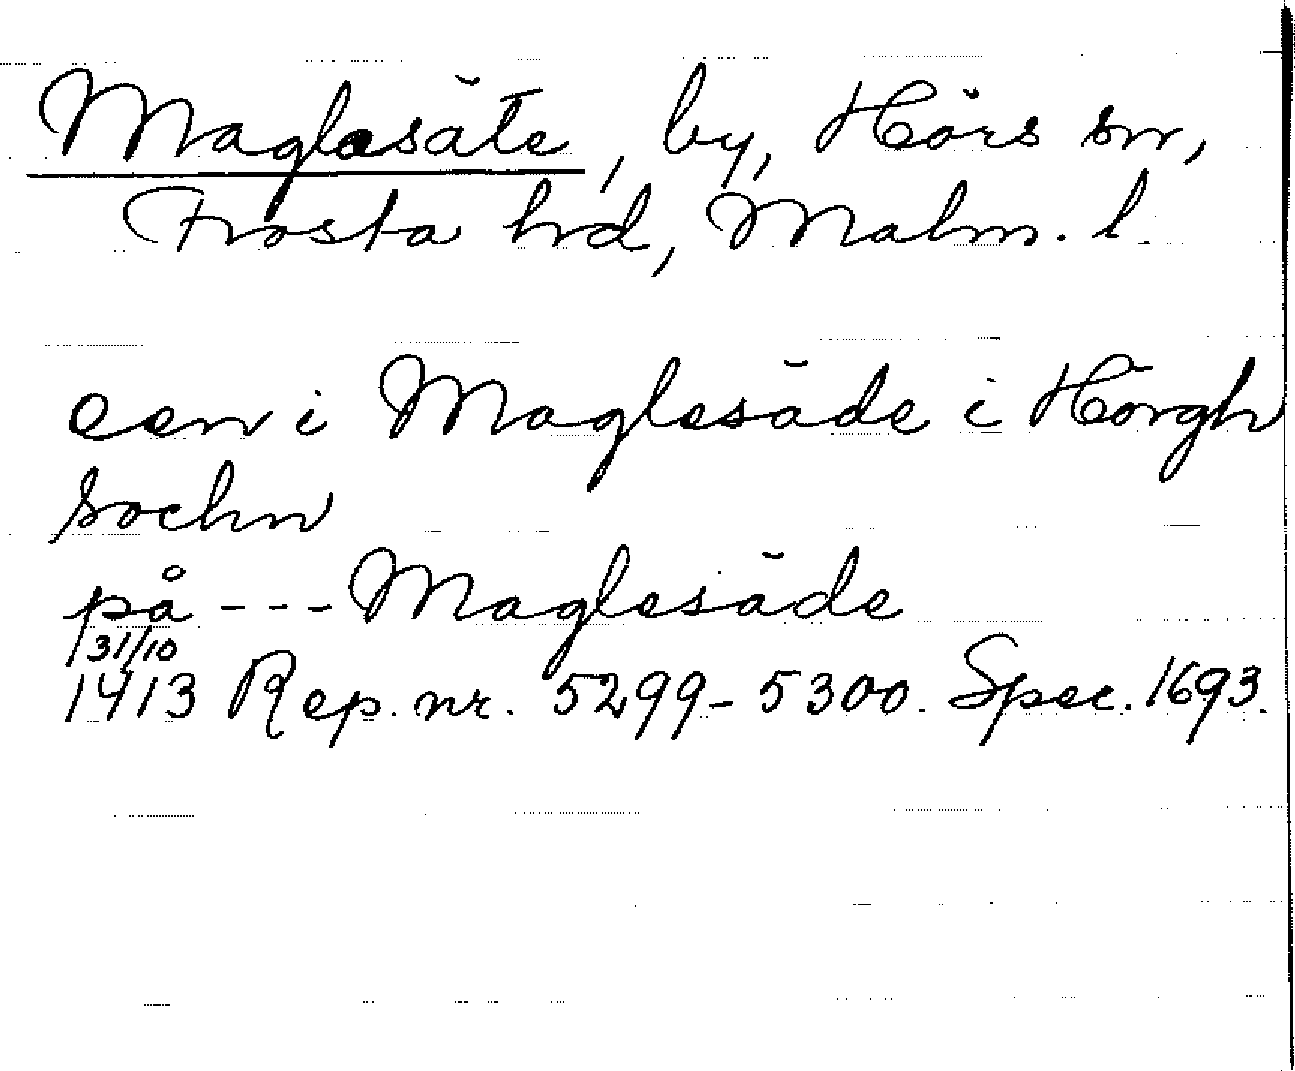 Maglesäte, by, Hörs sn,
Frosta hd, Malm. l.
een i Maglesäde i Hörgh
sochn
på --- Maglesäde
31/10
1413 Rep. nr. 5299-5300. Spec. 1693.